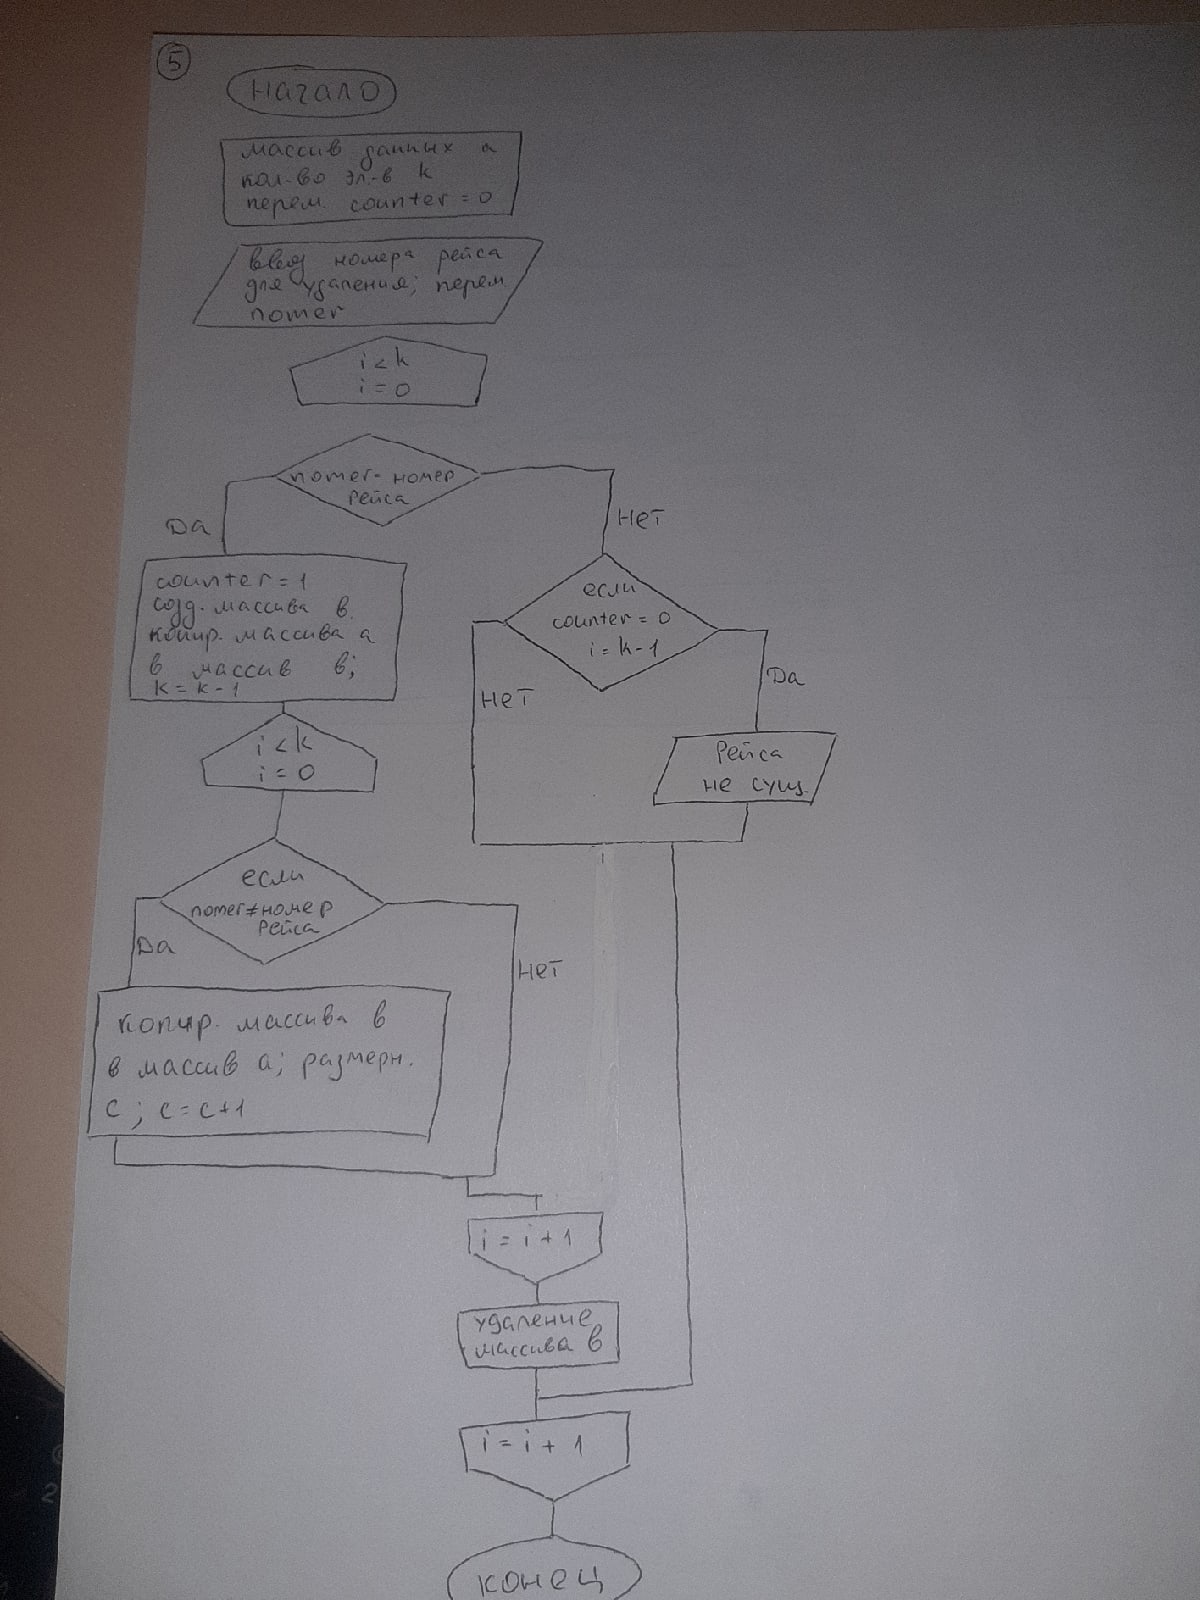 5
начало
массив данных а
кол-во эл-в k
перем. counter = 0
ввод номера рейса
для удаления; перем.
nomer
i < k
i = 0
nomer = номер
рейса
Да
Нет
counter = 1
созд. массива в.
копир. массива а
в массив в;
k = k - 1
если
counter = 0
i = k - 1
Нет
Да
Рейса
не сущ.
i < k
i = 0
если
nomer ≠ номер
Рейса
Да
Нет
копир. массива в
в массив а; размерн.
с; с = с + 1
i = i + 1
удаление
массива в
i = i + 1
конец
2